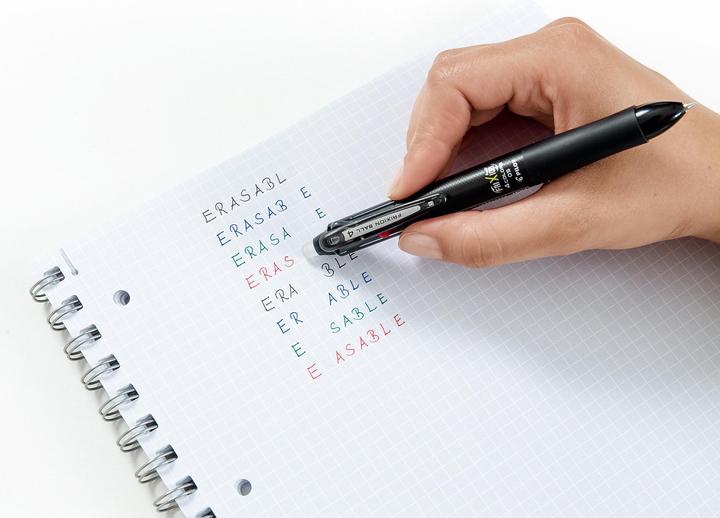 ERASABL
ERASAB E
ERASA E
ERAS
ERA BLE
ER ABLE
E SABLE
E ASABLE
FRIXION BALL 4
FRIXION
4 COLORS
05
PILOT